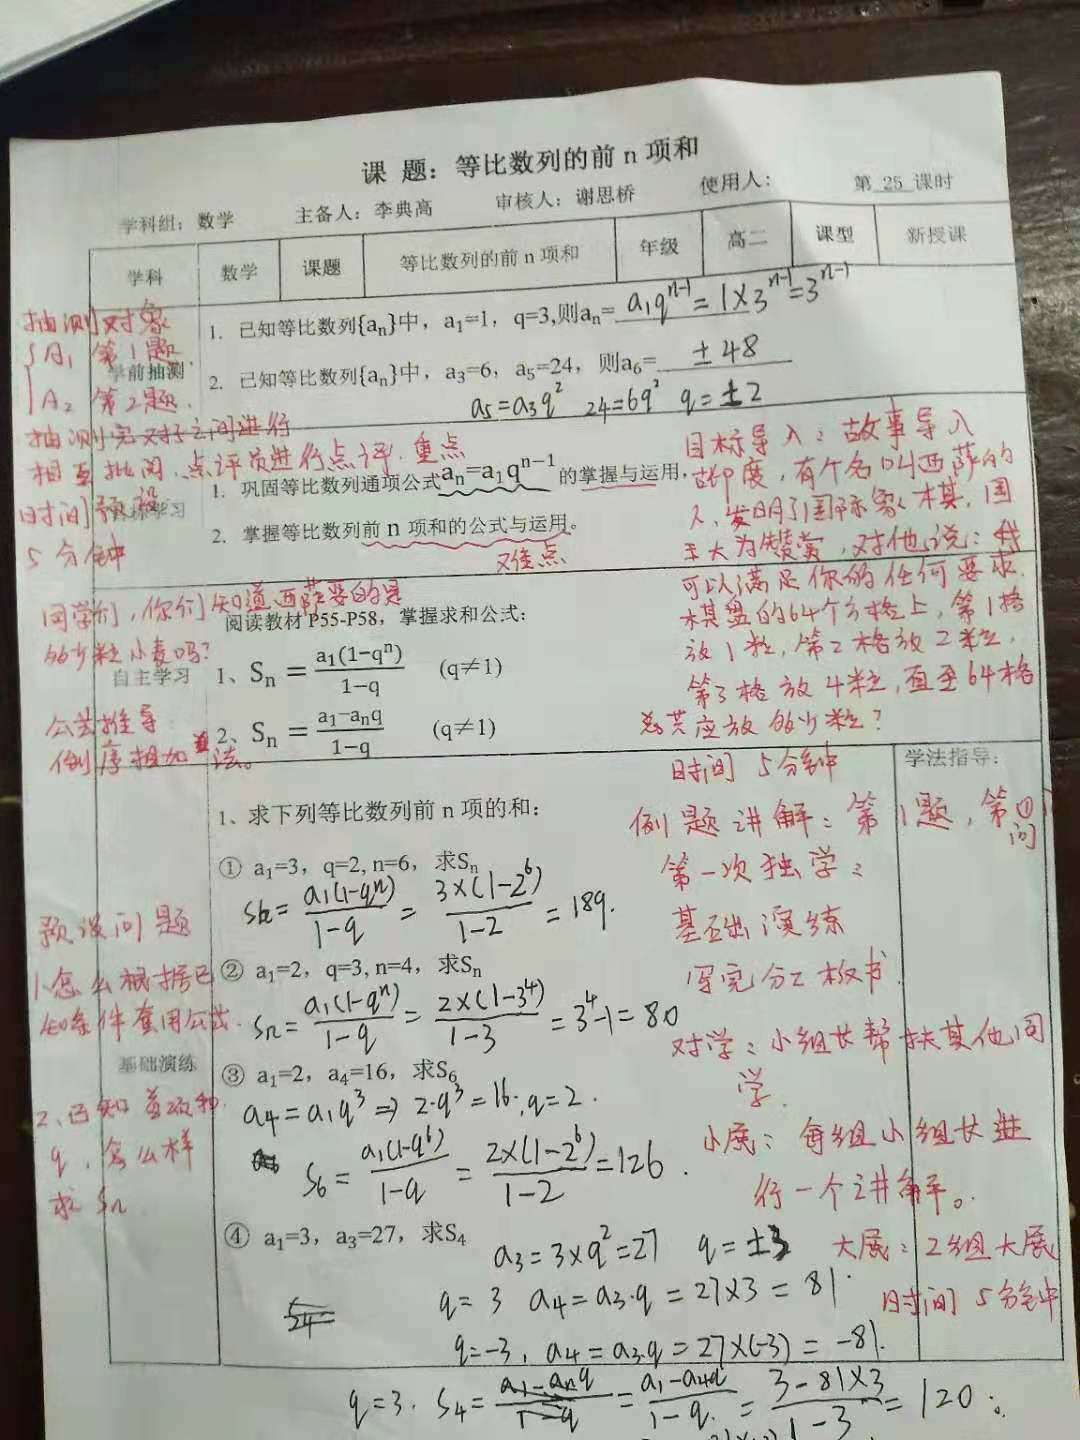 课 题：等比数列的前 n 项和
学科组：数学 主备人：李典高 审核人：谢思桥 使用人： 第 25 课时
学科 数学 课题 等比数列的前 n 项和 年级 高二 课型 新授课
抽测对象
A₁ 第1题
A₂ 第2题.
学前抽测
1. 已知等比数列{aₙ}中，a₁=1，q=3,则aₙ= a₁qⁿ⁻¹ = 1×3ⁿ⁻¹=3ⁿ⁻¹
2. 已知等比数列{aₙ}中，a₃=6，a₅=24，则a₆= ±48
a₅=a₃q² 24=6q² q=±2
抽测完对子之间进行
相互批阅，点评员进行点评.重点
时间预设
5分钟
学习
1. 巩固等比数列通项公式aₙ=a₁qⁿ⁻¹的掌握与运用,
2. 掌握等比数列前 n 项和的公式与运用。
难点
目标导入：故事导入
古印度，有个名叫西萨的
人，发明了国际象棋，国
王大为赞赏，对他说：我
可以满足你的任何要求.
棋盘的64个方格上，第1格
放1粒，第2格放2粒，
第3格放4粒，直至64格
总共应放多少粒？
时间5分钟
同学们，你们知道西萨要的是
多少粒小麦吗？
自主学习
阅读教材 P55-P58，掌握求和公式：
1、Sₙ = a₁(1−qⁿ)/1−q (q≠1)
2、Sₙ = a₁−aₙq/1−q (q≠1)
公式推导
倒序相加法。
学法指导：
1、求下列等比数列前 n 项的和：
① a₁=3，q=2, n=6，求Sₙ
Sₙ= a₁(1-qⁿ)/1-q = 3×(1-2⁶)/1-2 = 189.
② a₁=2，q=3, n=4，求Sₙ
Sₙ= a₁(1-qⁿ)/1-q = 2×(1-3⁴)/1-3 = 3⁴-1=80
③ a₁=2，a₄=16，求S₆
a₄=a₁q³ ⇒ 2·q³=16, q=2.
S₆= a₁(1-q⁶)/1-q = 2×(1-2⁶)/1-2 =126.
④ a₁=3，a₃=27，求S₄
a₃=3×q²=27 q=±3
q=3 a₄=a₃·q=27×3=81.
q=-3, a₄=a₃q=27×(-3)=-81.
q=3. S₄= a₁-aₙq/1-q = a₁-a₄q/1-q. = 3-81×3/1-3 = 120.
预设问题
1.怎么根据已
知条件套用公式.
基础演练
2、已知首项和
q，怎么样
求Sₙ
例题讲解：第1题，第①问
第一次独学：
基础演练
写完分工板书.
对学：小组长帮扶其他同
学.
小展：每组小组长进
行一个讲解。
大展：2组大展
时间5分钟